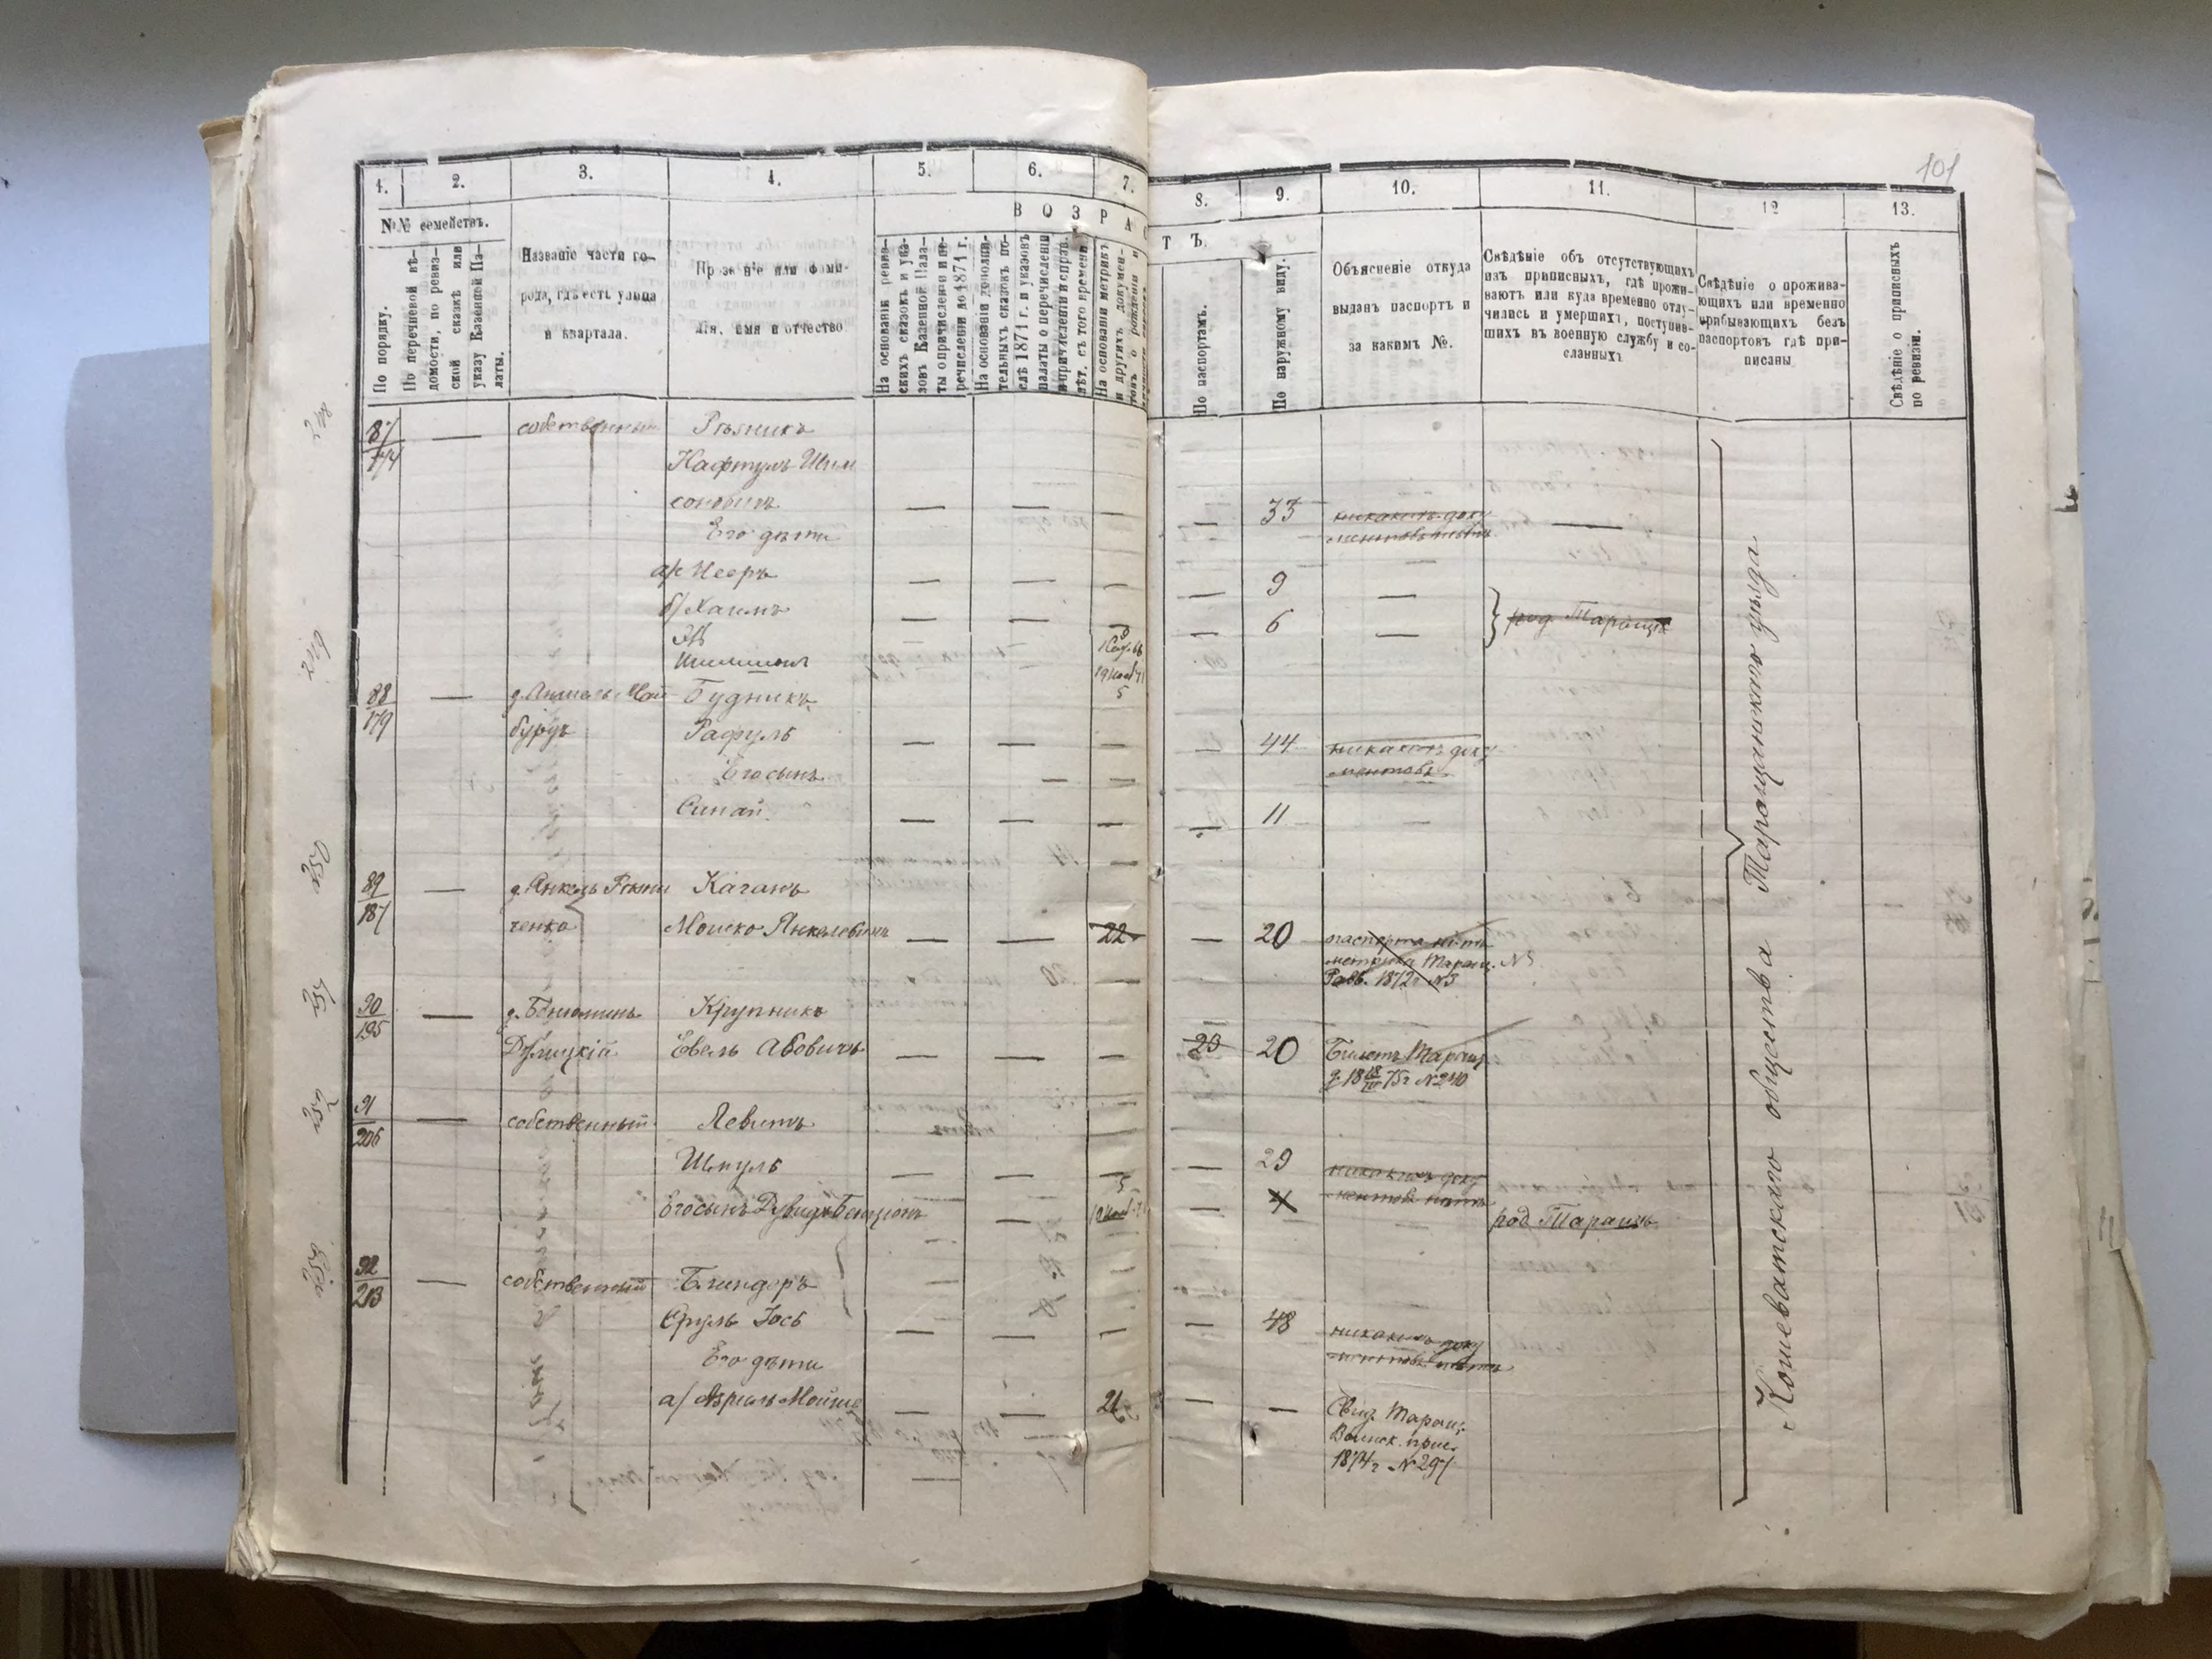 101
1.
2.
3.
4.
5.
6.
7.
8.
9.
10.
11.
12
13.
№№ семействъ.
По порядку.
По перечневой вѣ-
домости, по ревиз-
ской сказкѣ или
указу Казенной Па-
латы.
Названіе части го-
рода, гдѣ есть улица
и квартала.
Прозваніе или фами-
лія, имя и отчество
ВОЗРАСТЪ.
На основаніи ревиз-
скихъ сказокъ и ука-
зовъ Казенной Пала-
ты о причисленіи и пе-
речисленіи до 1871 г.
На основаніи дополни-
тельныхъ сказокъ по-
слѣ 1871 г. и указовъ
палаты о перечисленіи
и причисленіи и справ.
лѣт. съ того времени
На основаніи метрикъ
и другихъ докумен-
товъ о рожденіи и
По паспортамъ.
По наружному виду.
Объясненіе откуда
выданъ паспортъ и
за какимъ №.
Свѣдѣніе объ отсутствующихъ
изъ приписныхъ, гдѣ прожи-
ваютъ или куда временно отлу-
чились и умершихъ, поступив-
шихъ въ военную службу и со-
сланныхъ
Свѣдѣніе о прожива-
ющихъ или временно
прибывающихъ безъ
паспортовъ гдѣ при-
писаны
Свѣдѣніе о приписныхъ
по ревизіи.
87
174
собственный
Рѣзникъ
Нафтулъ Шим
соновичъ
33
никакихъ доку
ментовъ нѣтъ
Его дѣти
а/ Иосръ
9
б/ Хаимъ
6
род. Тараща
Шимшонъ
88
179
Будникъ
бурдъ
Рафулъ
44
никакихъ доку
ментовъ
Его сынъ
Синай
11
89
187
д. Янкель
ченко
Каганъ
Мошко Янкелевичъ
22
20
паспорта нѣтъ
метрика Таращ. №3
Равв. 1872 г №3
90
195
д. Бенюминъ
Дулицкій
Крупникъ
Евель Абовичъ
20
20
Билетъ Таращ
75 г №240
91
206
собственный
Левитъ
Шмуль
29
никакихъ доку
ментовъ нѣтъ
Его сынъ Дувидъ Бенціонъ
5
род. Тараща
92
213
собственный
Блиндеръ
Сруль Іось
48
никакихъ доку
ментовъ нѣтъ
Его дѣти
а/ Азриль Мойше
21
Свид. Таращ.
Воинск. прис.
1874 г №297
Кошеватскаго общества Таращанскаго уѣзда